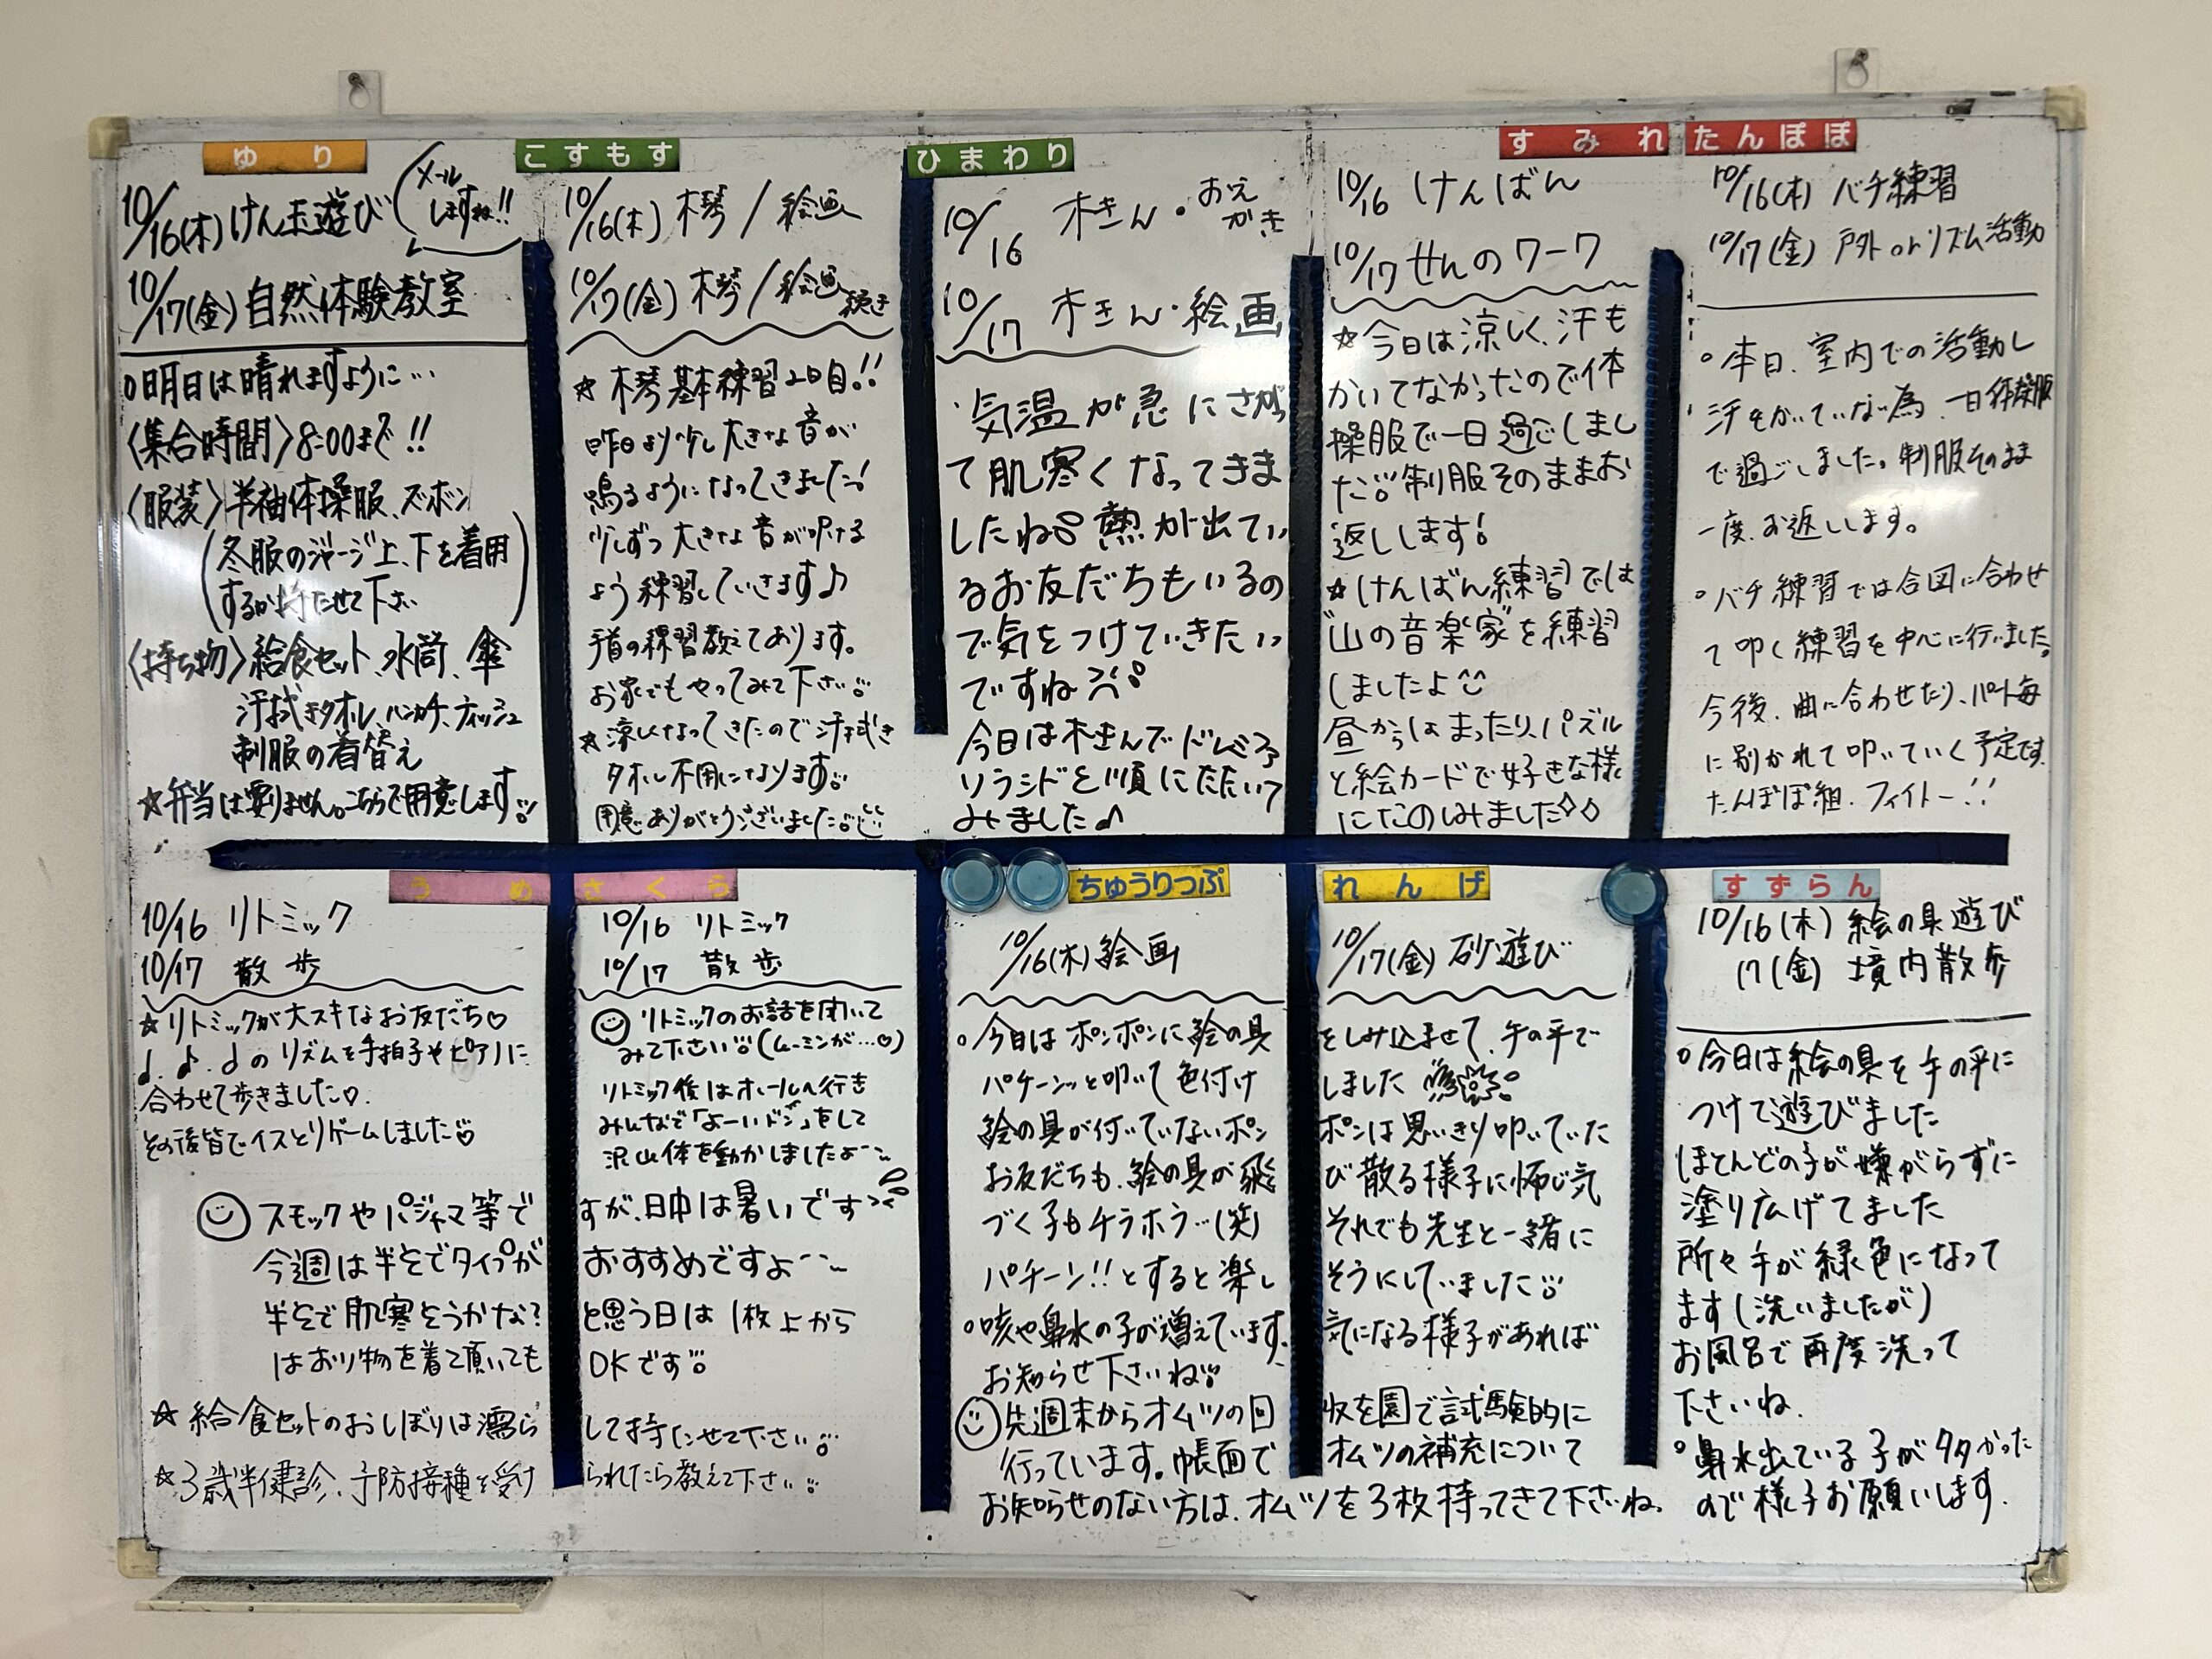 ゆり
10/16(木) けん玉遊び (メールしますね!!
10/17(金) 自然体験教室
○明日は晴れますように…
〈集合時間〉8:00まで!!
〈服装〉半袖体操服、ズボン
(冬服のジャージ上、下を着用
するか持たせて下さい)
〈持ち物〉給食セット、水筒、傘
汗拭きタオル、ハンカチ、ティッシュ
制服の着替え
☆弁当は要りません。こちらで用意します
こすもす
10/16(木) 木琴 / 絵画
10/17(金) 木琴 / 絵画続き
☆ 木琴基本練習2日目!!
昨日より少し大きな音が
鳴るようになってきました!
少しずつ大きな音が叩ける
よう練習していきます♪
手首の練習教えてあります。
お家でもやってみて下さい
☆涼しくなってきたので汗拭き
タオル不用になります
用意ありがとうございました
ひまわり
10/16 木きん・おえかき
10/17 木きん・絵画
・気温が急にさがっ
て肌寒くなってきま
したね 熱が出てい
るお友だちもいるの
で気をつけていきたい
ですね
今日は木きんでドレミファ
ソラシドを順にたたいて
みました♪
すみれ
10/16 けんばん
10/17 せんのワーク
☆今日は涼しく、汗も
かいてなかったので体
操服で一日過ごしまし
た 制服そのままお
返しします!
☆けんばん練習では
"山の音楽家"を練習
しましたよ
昼からはまったり、パズル
と絵カードで好きな様
にたのしみました◇◇
たんぽぽ
10/16(木) バチ練習
10/17(金) 戸外orリズム活動
○本日、室内での活動し
汗をかいていない為、一日体操服
で過ごしました。制服そのまま
一度、お返しします。
○バチ練習では合図に合わせ
て叩く練習を中心に行いました。
今後、曲に合わせたり、パート毎
に別かれて叩いていく予定です。
たんぽぽ組、ファイトー!!
うめ
10/16 リトミック
10/17 散歩
☆リトミックが大スキなお友だち♡
♩.♪.♩のリズムを手拍子やピアノに
合わせて歩きました♡.
その後皆でイスとりゲームしました
さくら
10/16 リトミック
10/17 散歩
リトミックのお話を聞いて
みて下さい(ムーミンが…♡)
リトミック後はホールへ行き
みんなで「よーいドン」をして
沢山体を動かしましたよ〜
スモックやパジャマ等で すが、日中は暑いです
今週は半そでタイプが おすすめですよ〜
半そで肌寒そうかな? と思う日は 1枚上から
はおり物を着て頂いても OKです
☆給食セットのおしぼりは濡ら して持たせて下さい
☆3歳半健診、予防接種を受け られたら教えて下さい
ちゅうりっぷ れんげ
10/16(木) 絵画 10/17(金) 砂遊び
○今日はポンポンに絵の具 をしみ込ませて、手の平で
パチーンッと叩いて色付け しました
絵の具が付いていないポン ポンは思いきり叩いていた
お友だちも、絵の具が飛 び散る様子に怖じ気
づく子もチラホラ…(笑) それでも先生と一緒に
パチーン!!とすると楽し そうにしていました
○咳や鼻水の子が増えています。 気になる様子があれば
お知らせ下さいね
先週末からオムツの回 収を園で試験的に
行っています。帳面で オムツの補充について
お知らせのない方は、オムツを3枚持ってきて下さいね.
すずらん
10/16(木) 絵の具遊び
17(金) 境内散歩
○今日は絵の具を手の平に
つけて遊びました
ほとんどの子が嫌がらずに
塗り広げてました
所々手が緑色になって
ます(洗いましたが)
お風呂で再度洗って
下さいね.
○鼻水出ている子が多かった
ので様子お願いします.